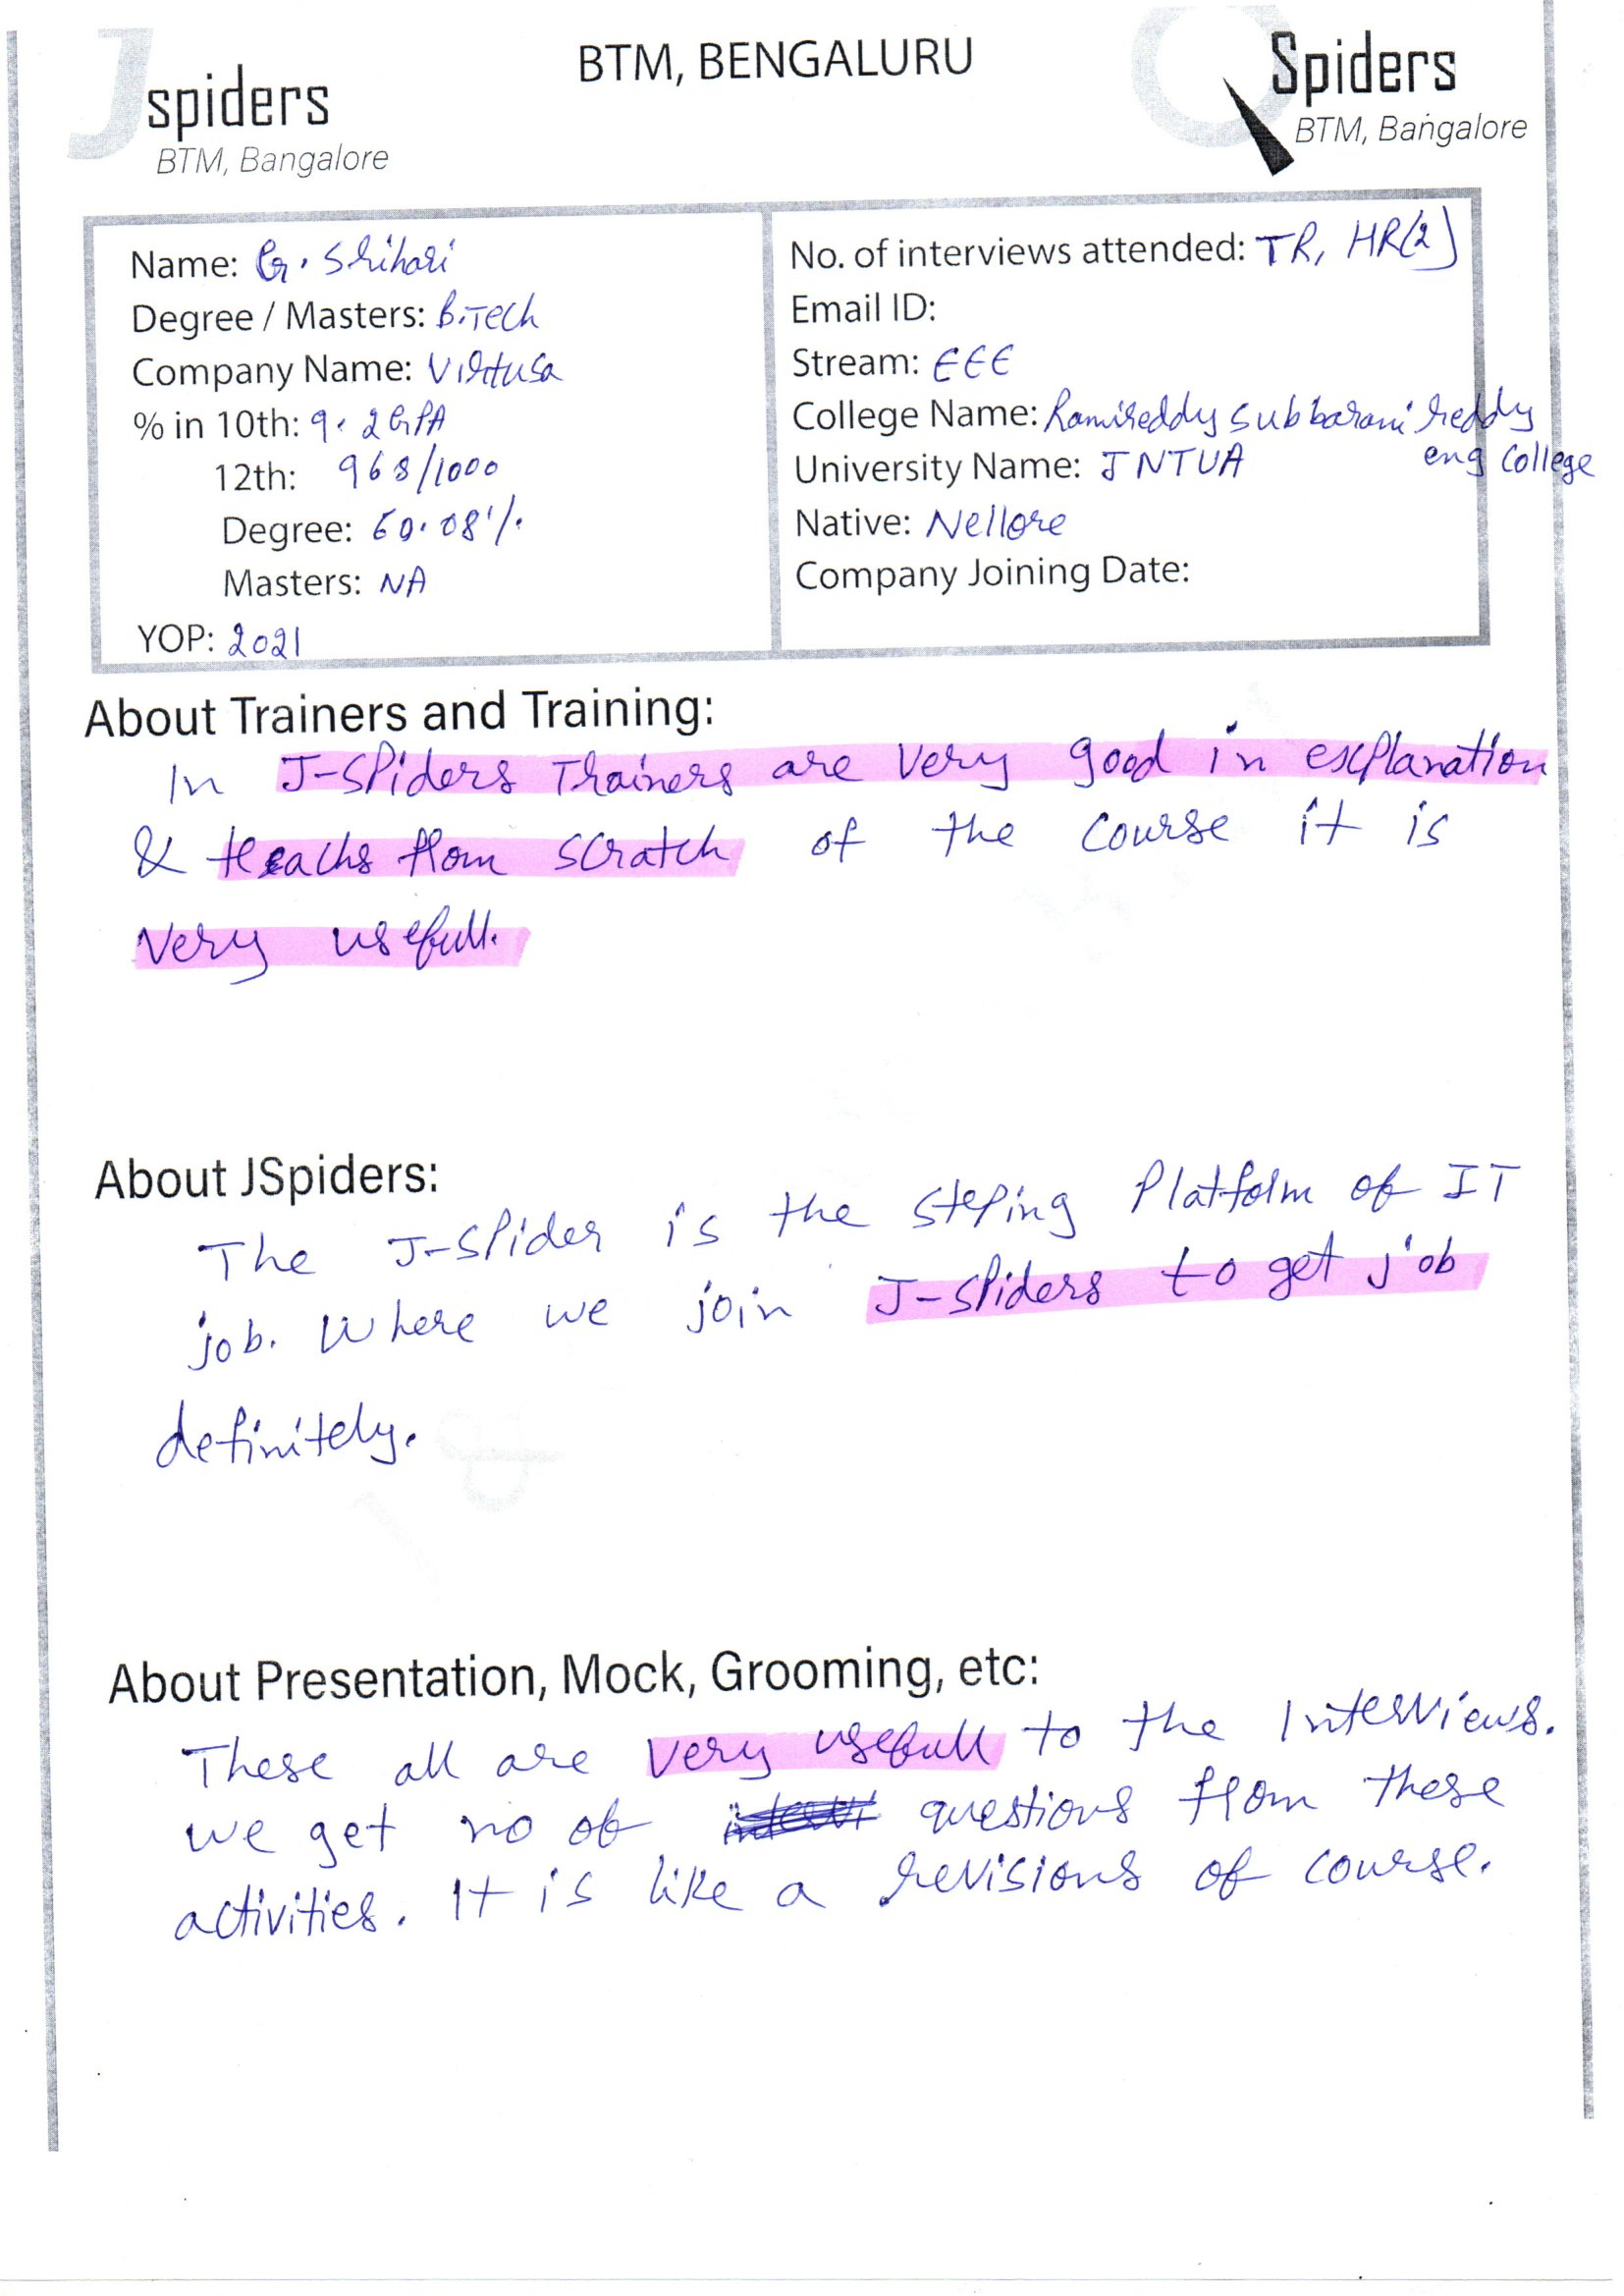 Jspiders
BTM, Bangalore
BTM, BENGALURU
QSpiders
BTM, Bangalore
Name: G. Srihari
Degree / Masters: B.Tech
Company Name: Virtusa
% in 10th: 9.2 GPA
12th: 968/1000
Degree: 60.08%
Masters: NA
YOP: 2021
No. of interviews attended: TR, HR(2)
Email ID:
Stream: EEE
College Name: Ramireddy subbarami reddy
eng College
University Name: JNTUA
Native: Nellore
Company Joining Date:
About Trainers and Training:
In J-Spiders Trainers are very good in explanation
& teachs from scratch of the course it is
very usefull.
About JSpiders:
The J-Spider is the steping Platform of IT
job. Where we join J-Spiders to get job
definitely.
About Presentation, Mock, Grooming, etc:
These all are very usefull to the Interviews.
we get no of questions from these
activities. It is like a revisions of course.